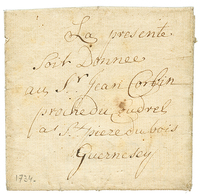 La presente
soit Donnee
au Sr. Jean Corbin
proche du Coudrel
a St. piere du bois
Guernesey
1724.